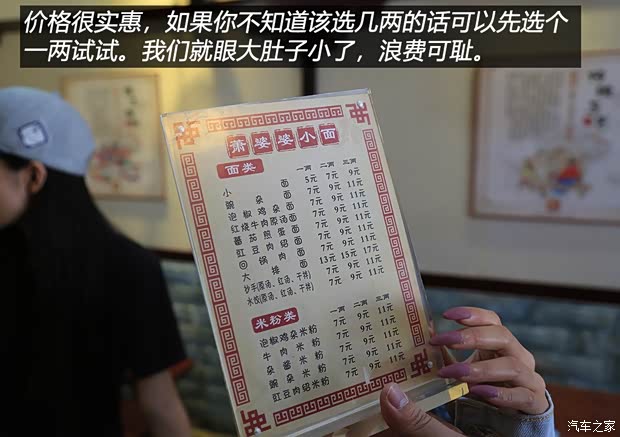 价格很实惠，如果你不知道该选几两的话可以先选个
一两试试。我们就眼大肚子小了，浪费可耻。
萧婆婆小面
面类
一两 二两 三两
小面 5元 7元 9元
豌杂面 7元 9元 11元
泡椒鸡杂面 7元 9元 11元
红烧牛肉面 7元 9元 11元
番茄煎蛋面 7元 9元 11元
豇豆肉绍面 7元 9元 11元
回锅肉面 7元 9元 11元
大排面 13元 15元 17元
抄手(原汤、红汤、干拌) 7元 9元 11元
水饺(原汤、红汤、干拌) 7元 9元 11元
米粉类
一两 二两 三两
泡椒鸡杂米粉 7元 9元 11元
牛肉米粉 7元 9元 11元
杂酱米粉 7元 9元 11元
豌杂米粉 7元 9元 11元
豇豆肉绍米粉 7元 9元 11元
汽车之家